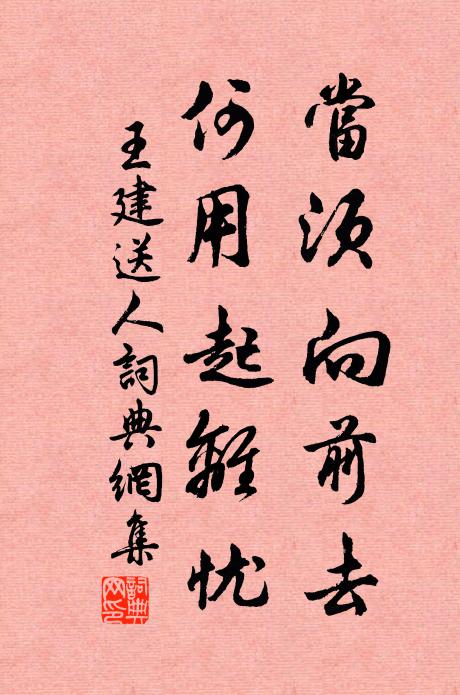 當須向前去
何用起離忧
王建送人詞典網集
詞典网印